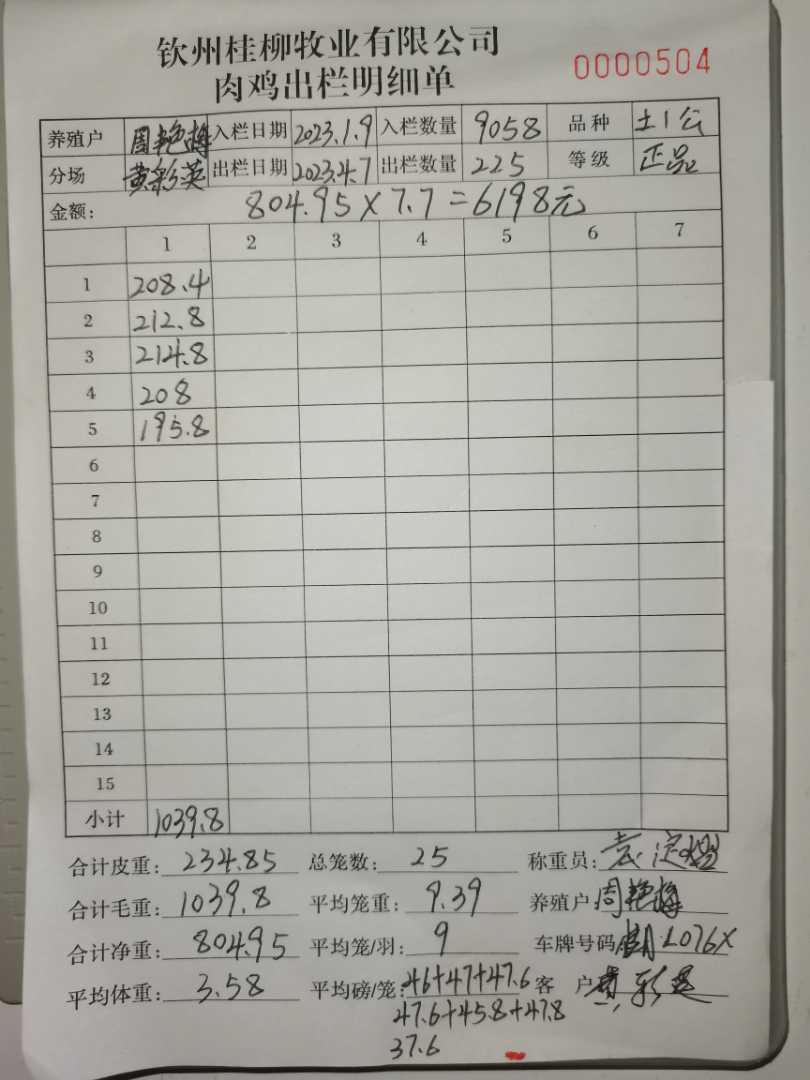 钦州桂柳牧业有限公司
肉鸡出栏明细单
0000504
养殖户 周艳梅 入栏日期 2023.1.9 入栏数量 9058 品种 土1公
分场 黄彩英 出栏日期 2023.4.7 出栏数量 225 等级 正品
金额: 804.95×7.7=6198元
1 2 3 4 5 6 7
1 208.4
2 212.8
3 214.8
4 208
5 195.8
6
7
8
9
10
11
12
13
14
15
小计 1039.8
合计皮重: 234.85 总笼数: 25 称重员:
合计毛重: 1039.8 平均笼重: 9.39 养殖户: 周艳梅
合计净重: 804.95 平均笼/羽: 9 车牌号码 L076X
平均体重: 3.58 平均磅/笼: 46+47+47.6 客 户
47.6+45.8+47.8
37.6